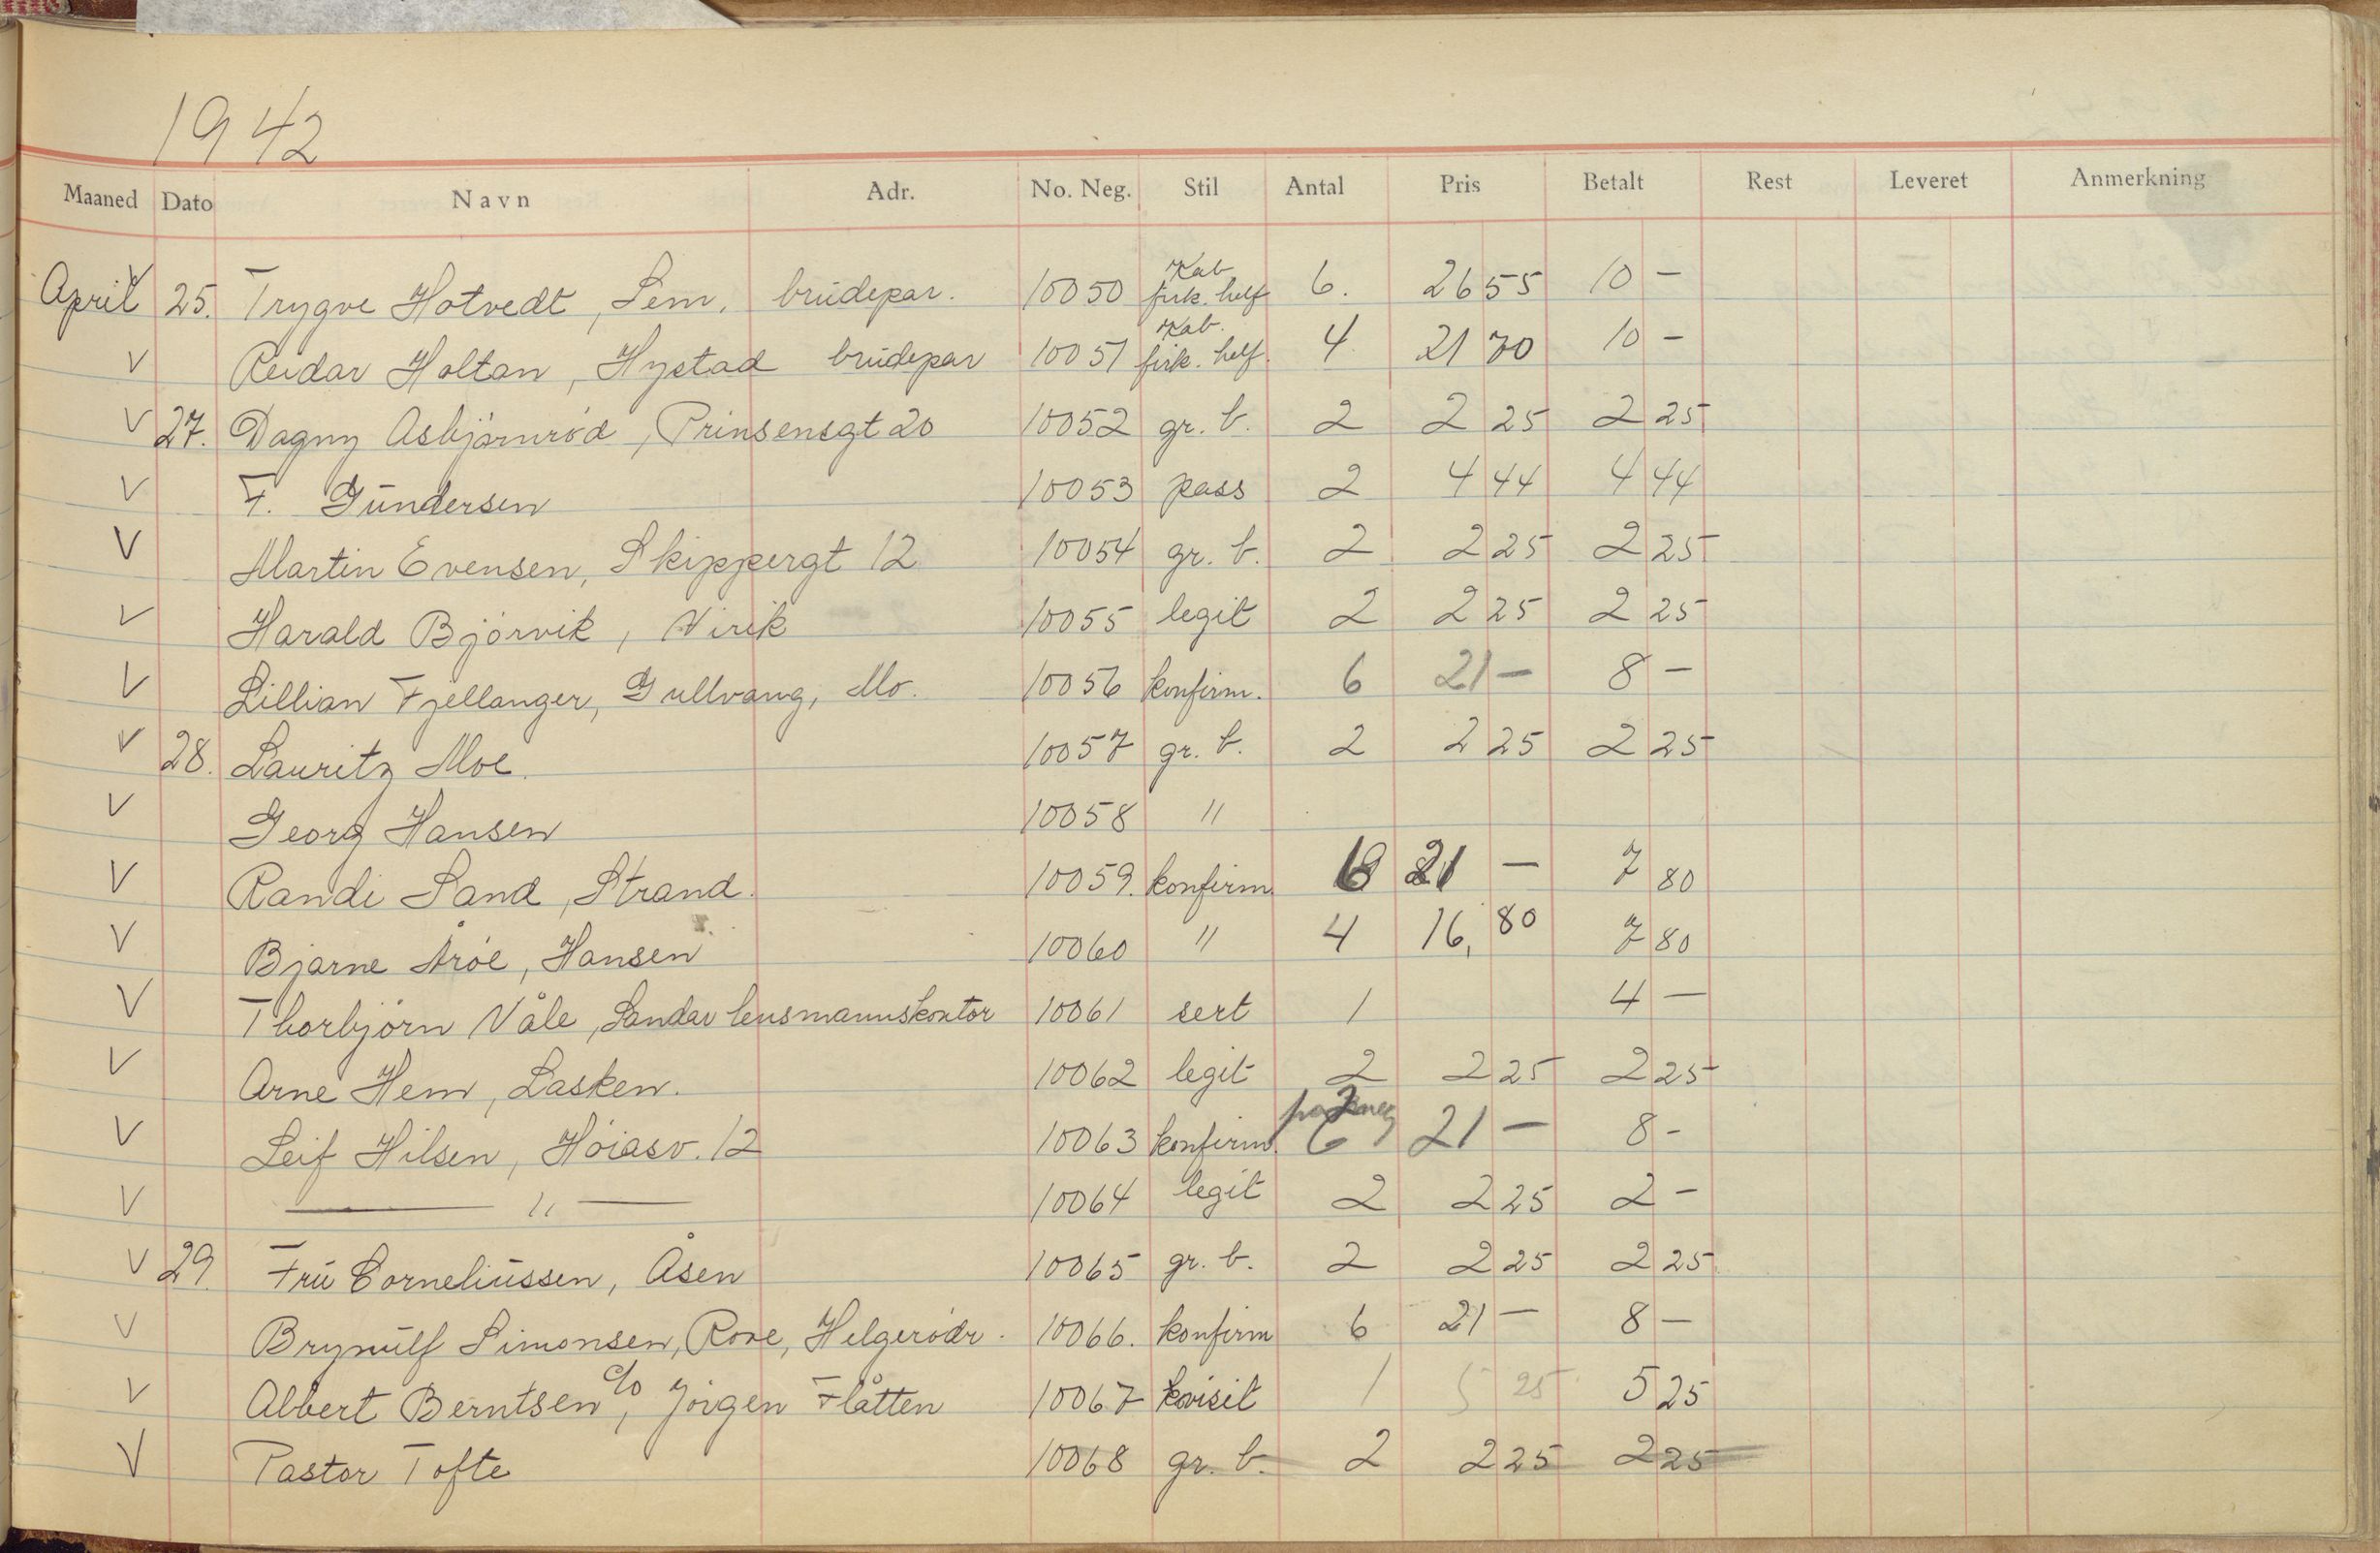 1942
Maaned Dato Navn Adr. No. Neg. Stil Antal Pris Betalt Rest Leveret Anmerkning
April V 25. Trygve Hotvedt, Sem, brudepar. 10050 Kab firk. helf 6. 26 55 10 -
V Reidar Holtan, Hystad brudepar 10051 Kab. firk. helf. 4 21 70 10 -
V 27. Dagny Asbjørnrød, Prinsensgt 20 10052 gr. b. 2 2 25 2 25
V F. Gundersen 10053 pass 2 4 44 4 44
V Martin Evensen, Skippergt 12 10054 gr. b. 2 2 25 2 25
V Harald Bjørvik, Virik 10055 legit 2 2 25 2 25
V Lillian Fjellanger, Gullvang, Mo. 10056 konfirm. 6 21 - 8 -
V 28. Lauritz Moe. 10057 gr. b. 2 2 25 2 25
V Georg Hansen 10058 "
V Randi Sand, Strand. 10059. konfirm. 6 21 - 7 80
V Bjarne Årøe, Hansen 10060 " 4 16, 80 7 80
V Thorbjørn Våle, Sandar lensmannskontor 10061 sert 1 4 -
V Arne Hem, Lasken. 10062 legit 2 2 25 2 25
V Leif Hilsen, Høiasv. 12 10063 konfirm. 6 21 - 8 -
V — " — 10064 legit 2 2 25 2 -
V 29 Fru Corneliussen, Åsen 10065 gr. b. 2 2 25 2 25
V Brynulf Simonsen, Rove, Helgerødr. 10066. konfirm 6 21 - 8 -
V Albert Berntsen, c/o Jørgen Flåtten 10067 kvisit 1 5 25 5 25
V Pastor Tofte 10068 gr. b. 2 2 25 2 25